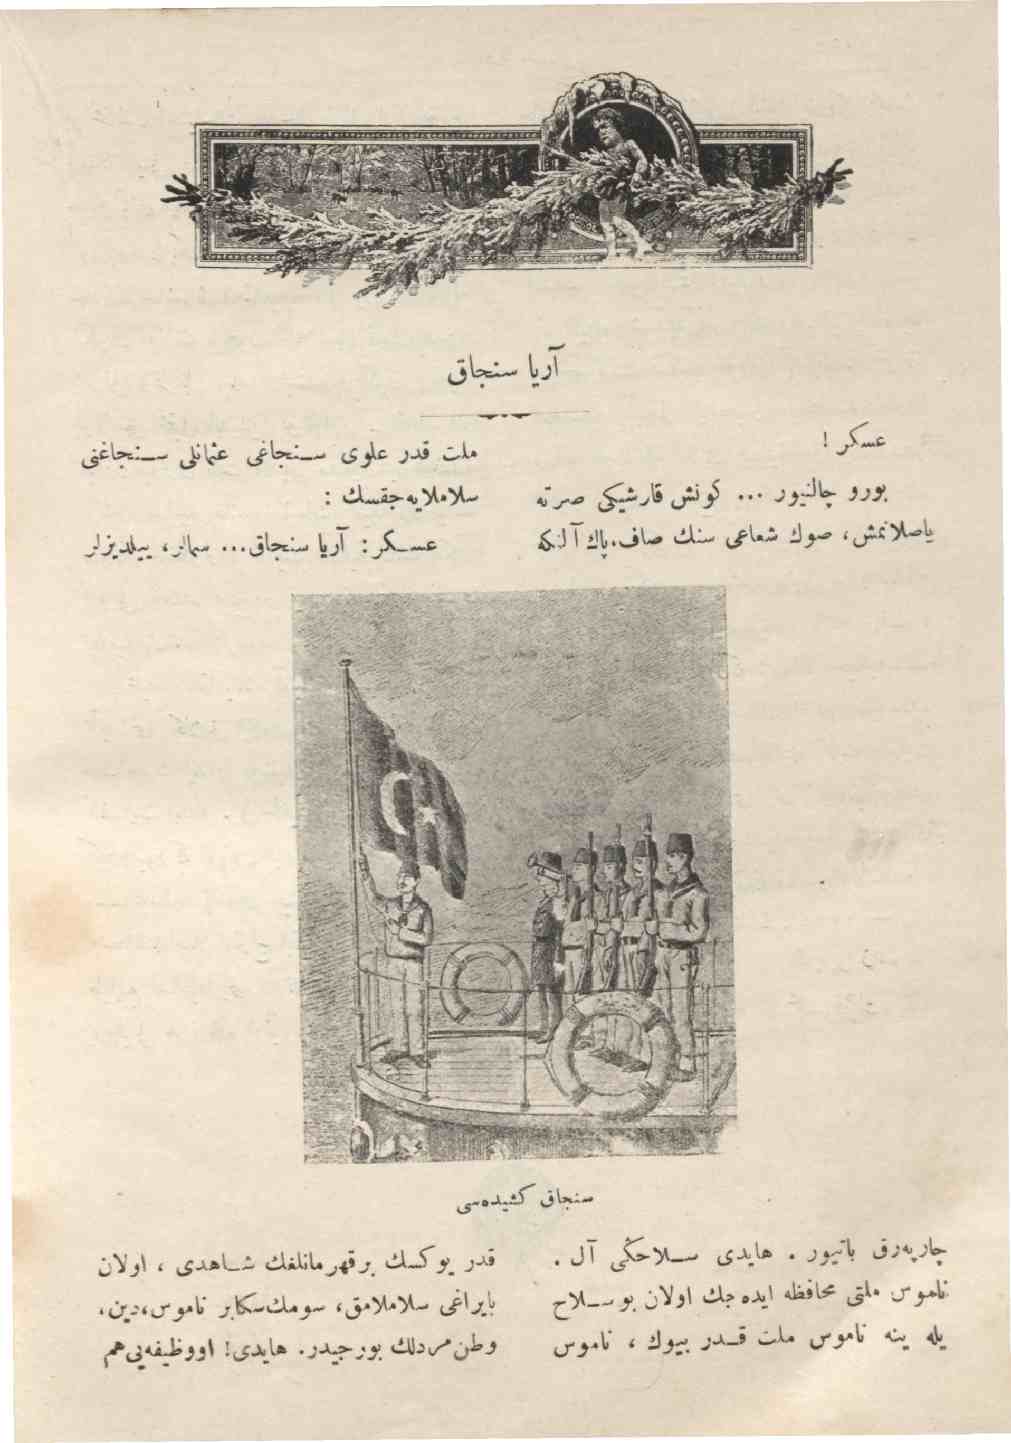 آریا سنجاق
عسکر !
بورو چالنیور ... کونش قارشیکی صرته
یاصلانمش، صوك شعاعی سنك صاف.پاك آلنکه
ملت قدر علوی سنجاغی عثمانلی سنجاغنی
سلاملایه‌جقسك :
عسکر : آریا سنجاق... سمالر، ییلدیزلر
سنجاق کشیده‌سی
چارپه‌رق باتیور . هایدی سلاحکی آل .
ناموس ملتی محافظه ایده جك اولان بو سلاح
یله ینه ناموس ملت قدر بیوك ، ناموس
قدر یوکسك بر قهرمانلغك شاهدی ، اولان
بایراغی سلاملامق، سومك سکا بر ناموس، دین،
وطن مردلك بورجیدر. هایدی! او وظیفه‌یی هم